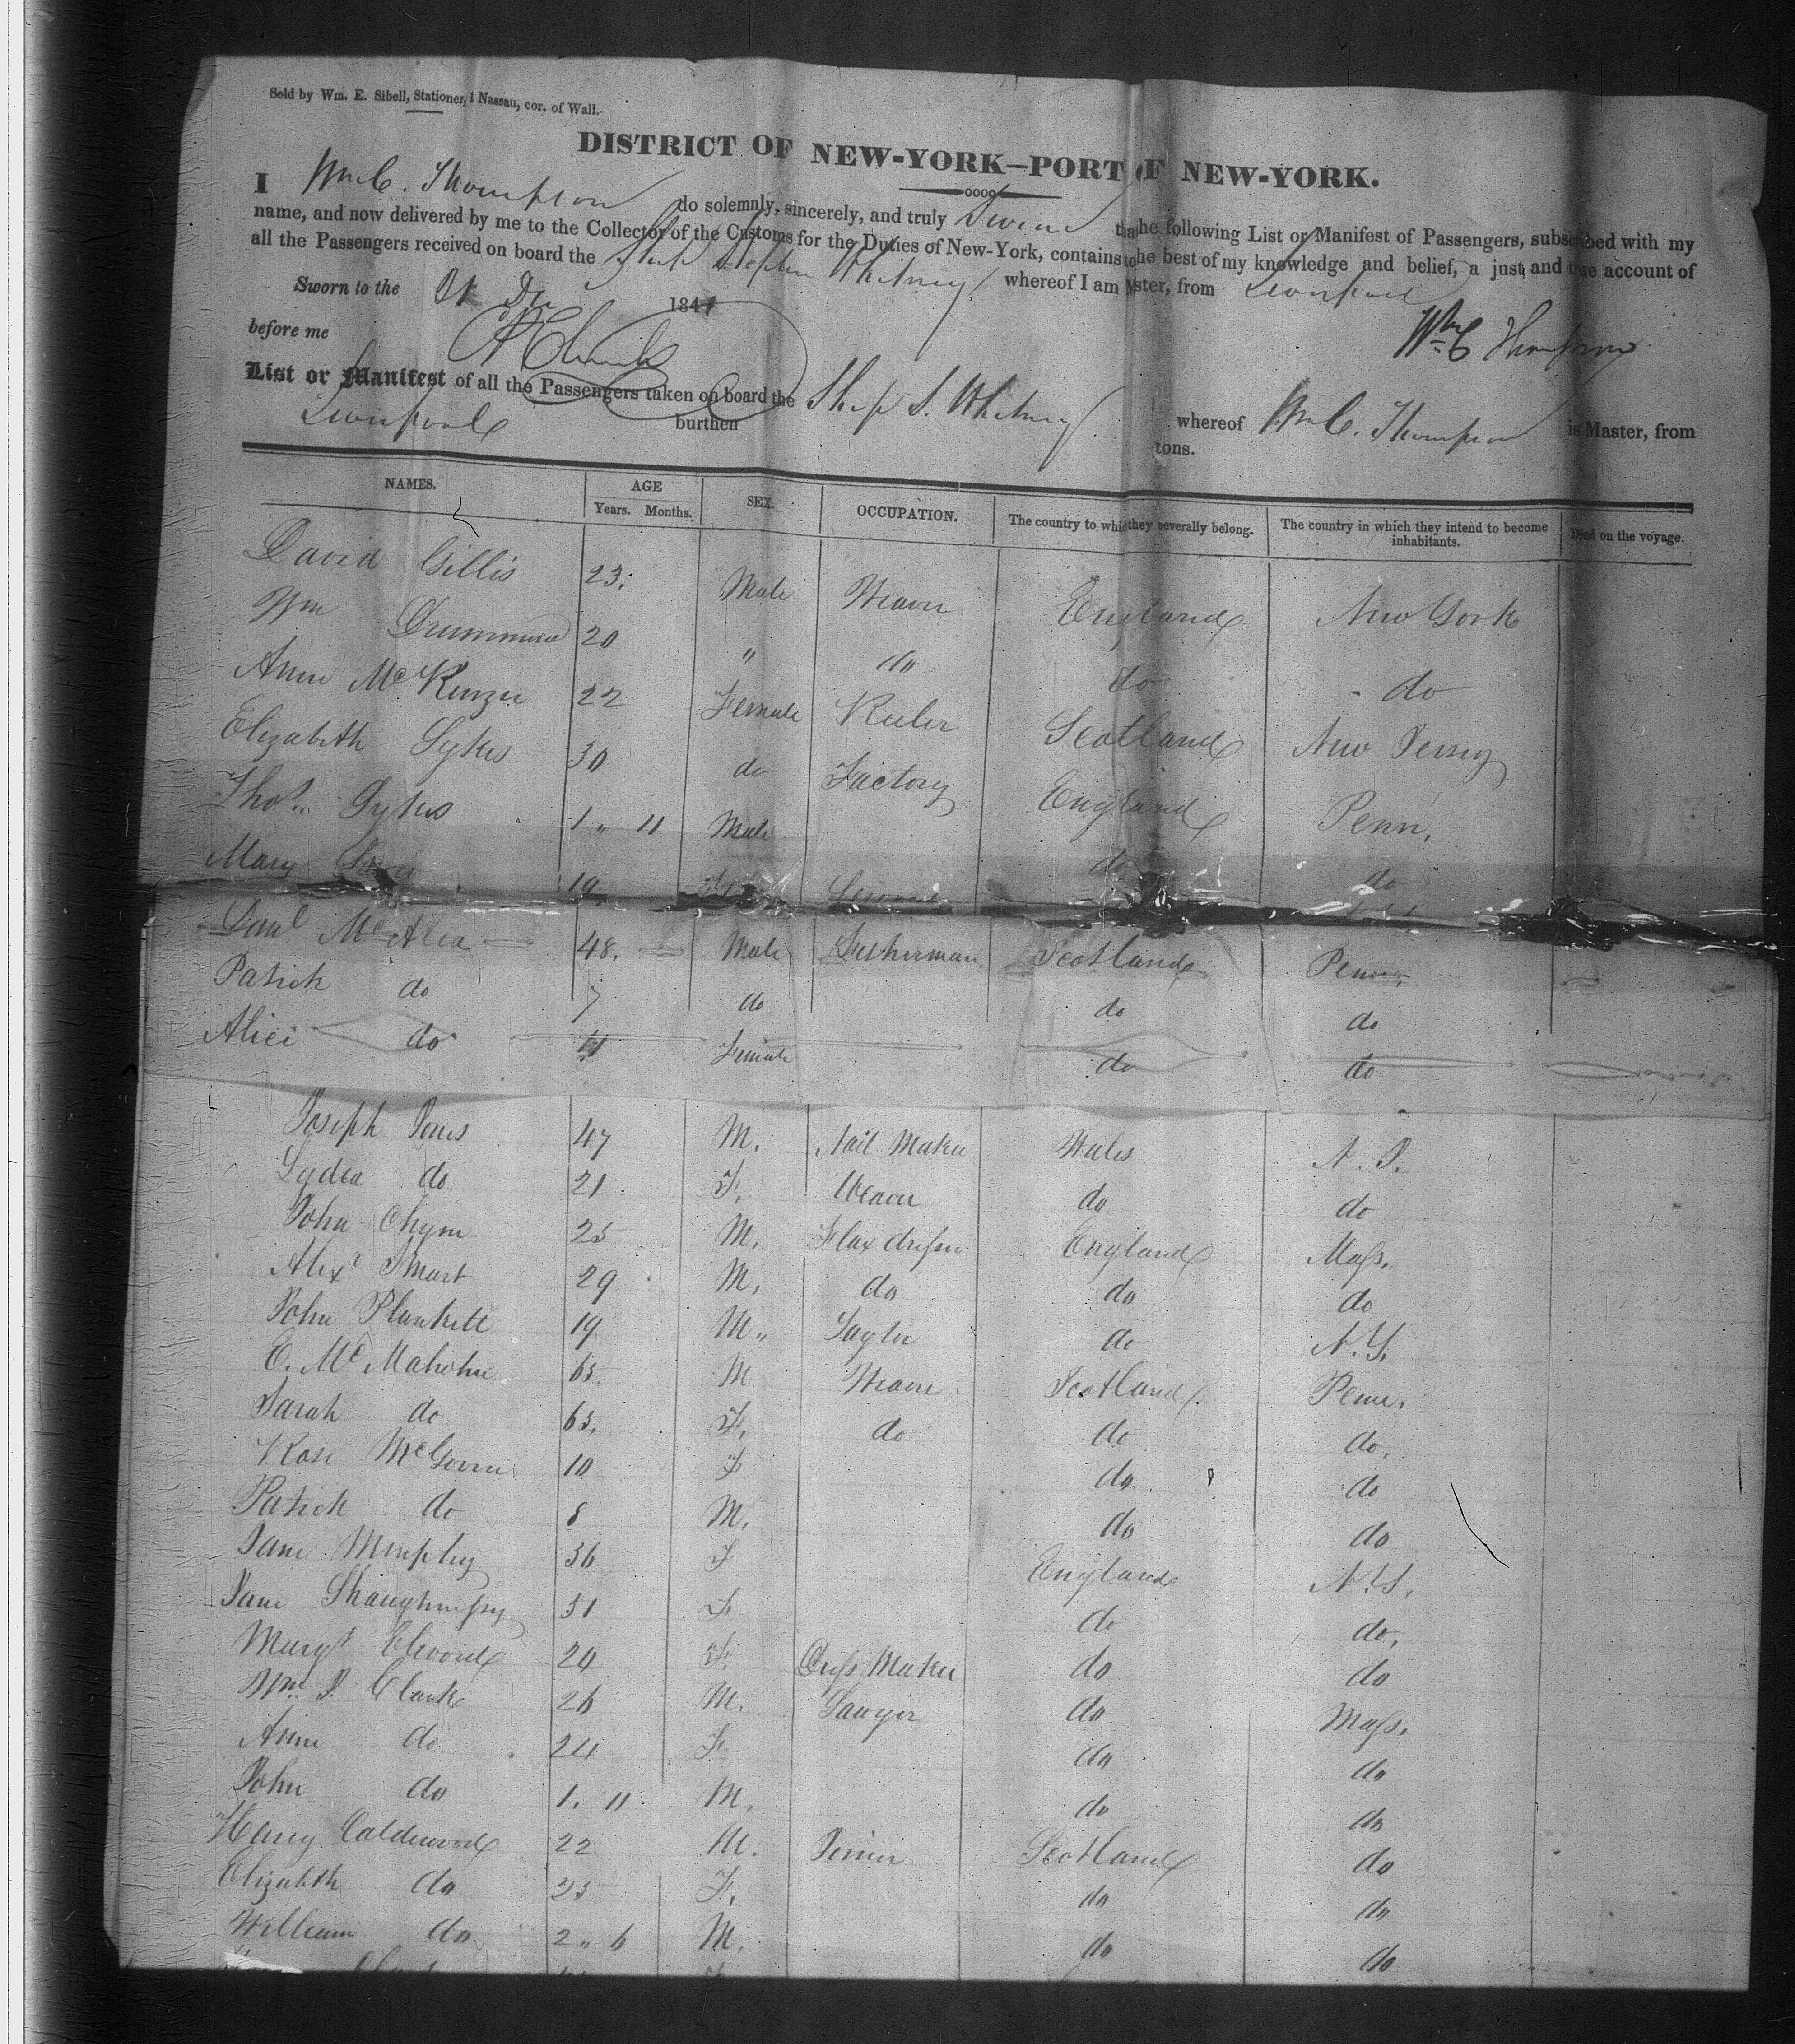 Sold by Wm. E. Sibell, Stationer, 1 Nassau, cor. of Wall.
DISTRICT OF NEW-YORK—PORT OF NEW-YORK.
I Wm C. Thompson do solemnly, sincerely, and truly Swear that the following List or Manifest of Passengers, subscribed with my
name, and now delivered by me to the Collector of the Customs for the Duties of New-York, contains to the best of my knowledge and belief, a just and true account of
all the Passengers received on board the Ship Stephen Whitney whereof I am Master, from Liverpool
Sworn to the Dec 184
Wm C Thompson
before me
List or Manifest of all the Passengers taken on board the Ship S. Whitney whereof Wm C. Thompson is Master, from
Liverpool burthen tons.
NAMES. AGE Years. Months. SEX. OCCUPATION. The country to which they severally belong. The country in which they intend to become inhabitants. Died on the voyage.
David Gillis 23 Male Weaver England New York
Wm Drummond 20 " do do do
Anne McKenzie 22 Female Reeler Scotland New Jersey
Elizabeth Sykes 30 do Factory England Penn.
Thos. Sykes 1 " 11 Male do do
Mary 19
Danl McAlea 48. Male Fisherman Scotland Penn.
Patrick do 7 do do do
Alice do Female do do
Joseph Jones 47 M. Nail Maker Wales N. J.
Lydea do 21 F. Weaver do do
John Chym 25 M. Flax dresser England Mass.
Alexr Smart 29 M. do do do
John Plunkett 19 M. do N.Y.
E. McMahone 65. M Weaver Scotland Penn.
Sarah do 65. F. do do do.
Rose McGovern 10 F do. do
Patrick do 8 M. do do
Jane Murphy 36 F England N.Y.
Jane Shaughnessy 31 F do do.
Margt Elwood 24 F. Dress Maker do do
Wm J. Clark 26 M. Sawyer do Mass.
Anne do 24 F. do do
John do 1. 11 M. do do
Henry Calderwood 22 M. Joiner Scotland do
Elizabeth do 25 F. do do
William do 2 " 6 M. do do